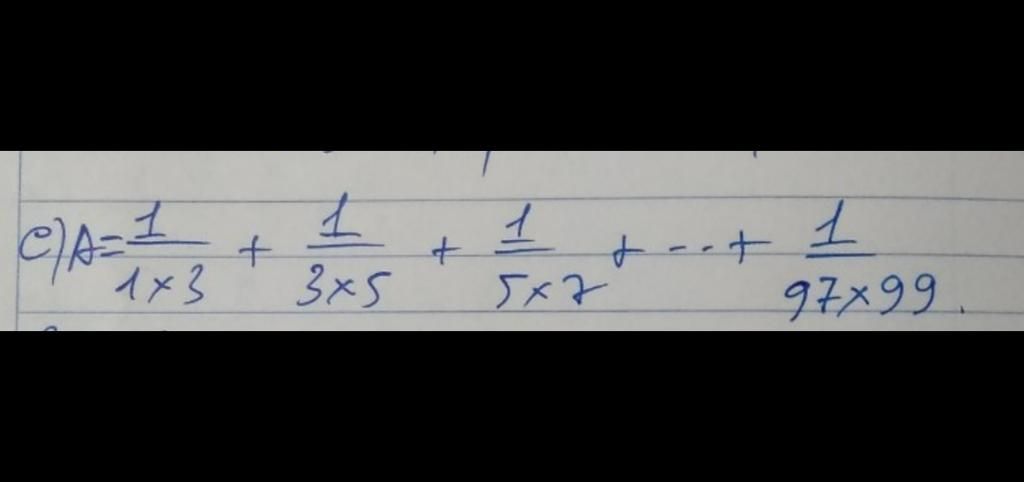 c) A = 1/(1×3) + 1/(3×5) + 1/(5×7) + --- + 1/(97×99).